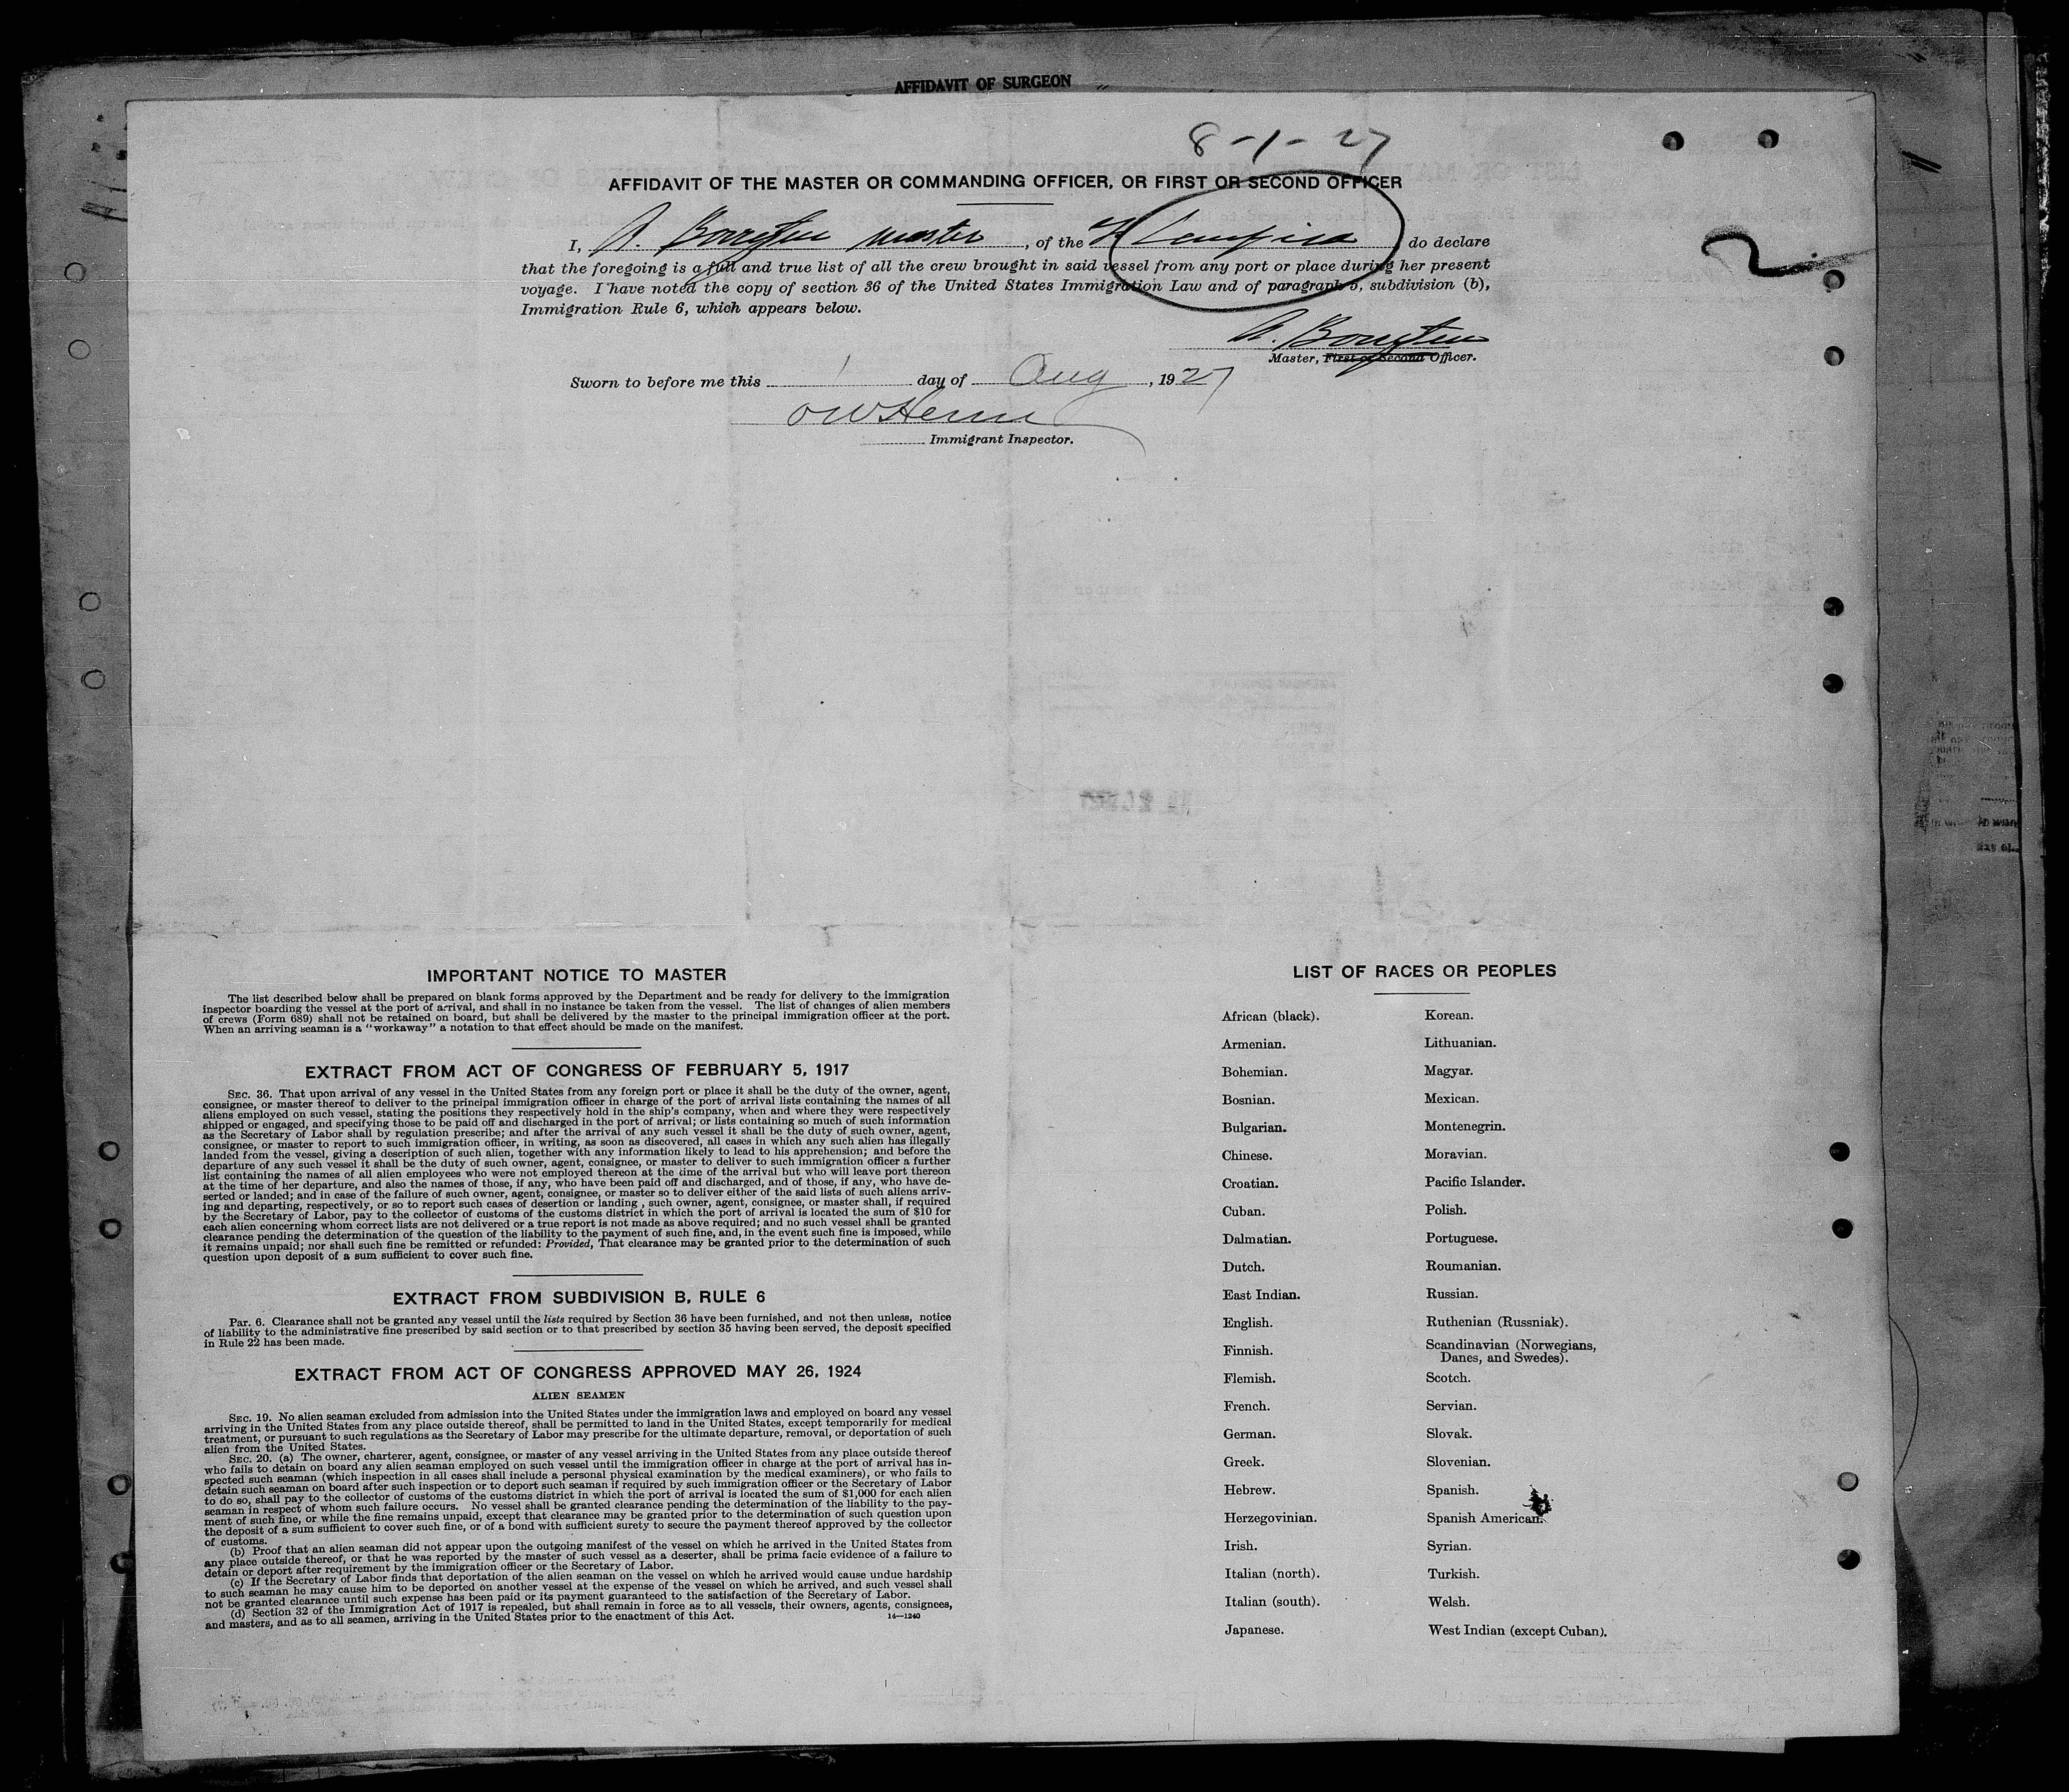 AFFIDAVIT OF SURGEON
8-1-27
AFFIDAVIT OF THE MASTER OR COMMANDING OFFICER, OR FIRST OR SECOND OFFICER
I, A. master, of the do declare
that the foregoing is a full and true list of all the crew brought in said vessel from any port or place during her present
voyage. I have noted the copy of section 36 of the United States Immigration Law and of paragraph 6, subdivision (b),
Immigration Rule 6, which appears below.
2
A.
Master, First or Second Officer.
Sworn to before me this 1 day of Aug, 1927
Immigrant Inspector.
IMPORTANT NOTICE TO MASTER
The list described below shall be prepared on blank forms approved by the Department and be ready for delivery to the immigration
inspector boarding the vessel at the port of arrival, and shall in no instance be taken from the vessel. The list of changes of alien members
of crews (Form 689) shall not be retained on board, but shall be delivered by the master to the principal immigration officer at the port.
When an arriving seaman is a "workaway" a notation to that effect should be made on the manifest.
EXTRACT FROM ACT OF CONGRESS OF FEBRUARY 5, 1917
SEC. 36. That upon arrival of any vessel in the United States from any foreign port or place it shall be the duty of the owner, agent,
consignee, or master thereof to deliver to the principal immigration officer in charge of the port of arrival lists containing the names of all
aliens employed on such vessel, stating the positions they respectively hold in the ship's company, when and where they were respectively
shipped or engaged, and specifying those to be paid off and discharged in the port of arrival; or lists containing so much of such information
as the Secretary of Labor shall by regulation prescribe; and after the arrival of any such vessel it shall be the duty of such owner, agent,
consignee, or master to report to such immigration officer, in writing, as soon as discovered, all cases in which any such alien has illegally
landed from the vessel, giving a description of such alien, together with any information likely to lead to his apprehension; and before the
departure of any such vessel it shall be the duty of such owner, agent, consignee, or master to deliver to such immigration officer a further
list containing the names of all alien employees who were not employed thereon at the time of the arrival but who will leave port thereon
at the time of her departure, and also the names of those, if any, who have been paid off and discharged, and of those, if any, who have de-
serted or landed; and in case of the failure of such owner, agent, consignee, or master so to deliver either of the said lists of such aliens arriv-
ing and departing, respectively, or so to report such cases of desertion or landing , such owner, agent, consignee, or master shall, if required
by the Secretary of Labor, pay to the collector of customs of the customs district in which the port of arrival is located the sum of $10 for
each alien concerning whom correct lists are not delivered or a true report is not made as above required; and no such vessel shall be granted
clearance pending the determination of the question of the liability to the payment of such fine, and, in the event such fine is imposed, while
it remains unpaid; nor shall such fine be remitted or refunded: Provided, That clearance may be granted prior to the determination of such
question upon deposit of a sum sufficient to cover such fine.
EXTRACT FROM SUBDIVISION B, RULE 6
Par. 6. Clearance shall not be granted any vessel until the lists required by Section 36 have been furnished, and not then unless, notice
of liability to the administrative fine prescribed by said section or to that prescribed by section 35 having been served, the deposit specified
in Rule 22 has been made.
EXTRACT FROM ACT OF CONGRESS APPROVED MAY 26, 1924
ALIEN SEAMEN
SEC. 19. No alien seaman excluded from admission into the United States under the immigration laws and employed on board any vessel
arriving in the United States from any place outside thereof, shall be permitted to land in the United States, except temporarily for medical
treatment, or pursuant to such regulations as the Secretary of Labor may prescribe for the ultimate departure, removal, or deportation of such
alien from the United States.
SEC. 20. (a) The owner, charterer, agent, consignee, or master of any vessel arriving in the United States from any place outside thereof
who fails to detain on board any alien seaman employed on such vessel until the immigration officer in charge at the port of arrival has in-
spected such seaman (which inspection in all cases shall include a personal physical examination by the medical examiners), or who fails to
detain such seaman on board after such inspection or to deport such seaman if required by such immigration officer or the Secretary of Labor
to do so, shall pay to the collector of customs of the customs district in which the port of arrival is located the sum of $1,000 for each alien
seaman in respect of whom such failure occurs. No vessel shall be granted clearance pending the determination of the liability to the pay-
ment of such fine, or while the fine remains unpaid, except that clearance may be granted prior to the determination of such question upon
the deposit of a sum sufficient to cover such fine, or of a bond with sufficient surety to secure the payment thereof approved by the collector
of customs.
(b) Proof that an alien seaman did not appear upon the outgoing manifest of the vessel on which he arrived in the United States from
any place outside thereof, or that he was reported by the master of such vessel as a deserter, shall be prima facie evidence of a failure to
detain or deport after requirement by the immigration officer or the Secretary of Labor.
(c) If the Secretary of Labor finds that deportation of the alien seaman on the vessel on which he arrived would cause undue hardship
to such seaman he may cause him to be deported on another vessel at the expense of the vessel on which he arrived, and such vessel shall
not be granted clearance until such expense has been paid or its payment guaranteed to the satisfaction of the Secretary of Labor.
(d) Section 32 of the Immigration Act of 1917 is repealed, but shall remain in force as to all vessels, their owners, agents, consignees,
and masters, and as to all seamen, arriving in the United States prior to the enactment of this Act.
14—1240
LIST OF RACES OR PEOPLES
African (black).
Armenian.
Bohemian.
Bosnian.
Bulgarian.
Chinese.
Croatian.
Cuban.
Dalmatian.
Dutch.
East Indian.
English.
Finnish.
Flemish.
French.
German.
Greek.
Hebrew.
Herzegovinian.
Irish.
Italian (north).
Italian (south).
Japanese.
Korean.
Lithuanian.
Magyar.
Mexican.
Montenegrin.
Moravian.
Pacific Islander.
Polish.
Portuguese.
Roumanian.
Russian.
Ruthenian (Russniak).
Scandinavian (Norwegians,
Danes, and Swedes).
Scotch.
Servian.
Slovak.
Slovenian.
Spanish.
Spanish American.
Syrian.
Turkish.
Welsh.
West Indian (except Cuban).